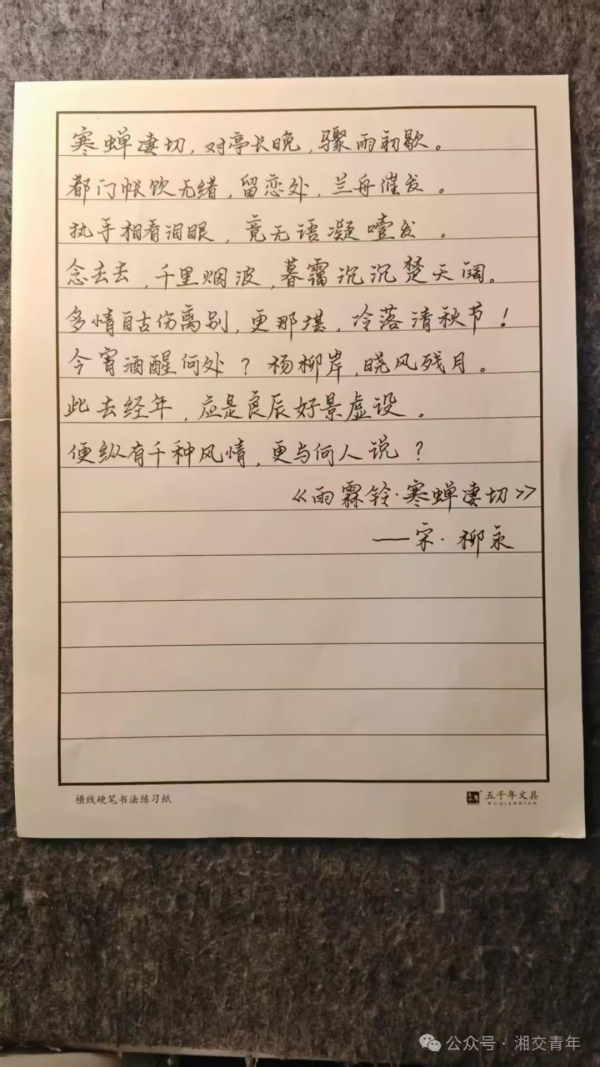 寒蝉凄切，对亭长晚，骤雨初歇。
都门帐饮无绪，留恋处，兰舟催发。
执手相看泪眼，竟无语凝噎发。
念去去，千里烟波，暮霭沉沉楚天阔。
多情自古伤离别，更那堪，冷落清秋节！
今宵酒醒何处？杨柳岸，晓风残月。
此去经年，应是良辰好景虚设。
便纵有千种风情，更与何人说？
《雨霖铃·寒蝉凄切》
——宋·柳永
横线硬笔书法练习纸
五千年文具
WUQIANNIAN
公众号·湘交青年